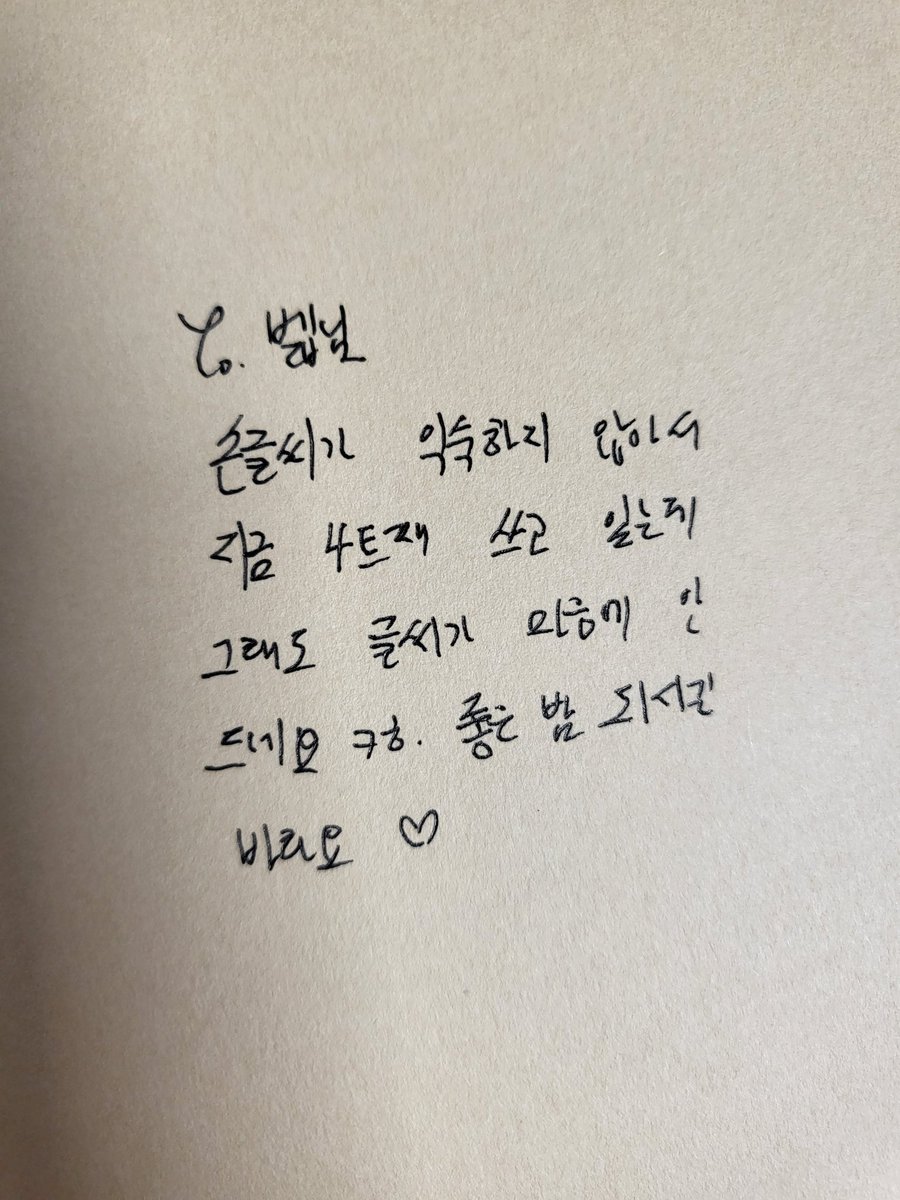 To. 벨님
손글씨가 익숙하지 않아서
지금 4트째 쓰고 있는데
그래도 글씨가 마음에 안
드네요 ㅋㅎ. 좋은 밤 되시길
바라요 ♡